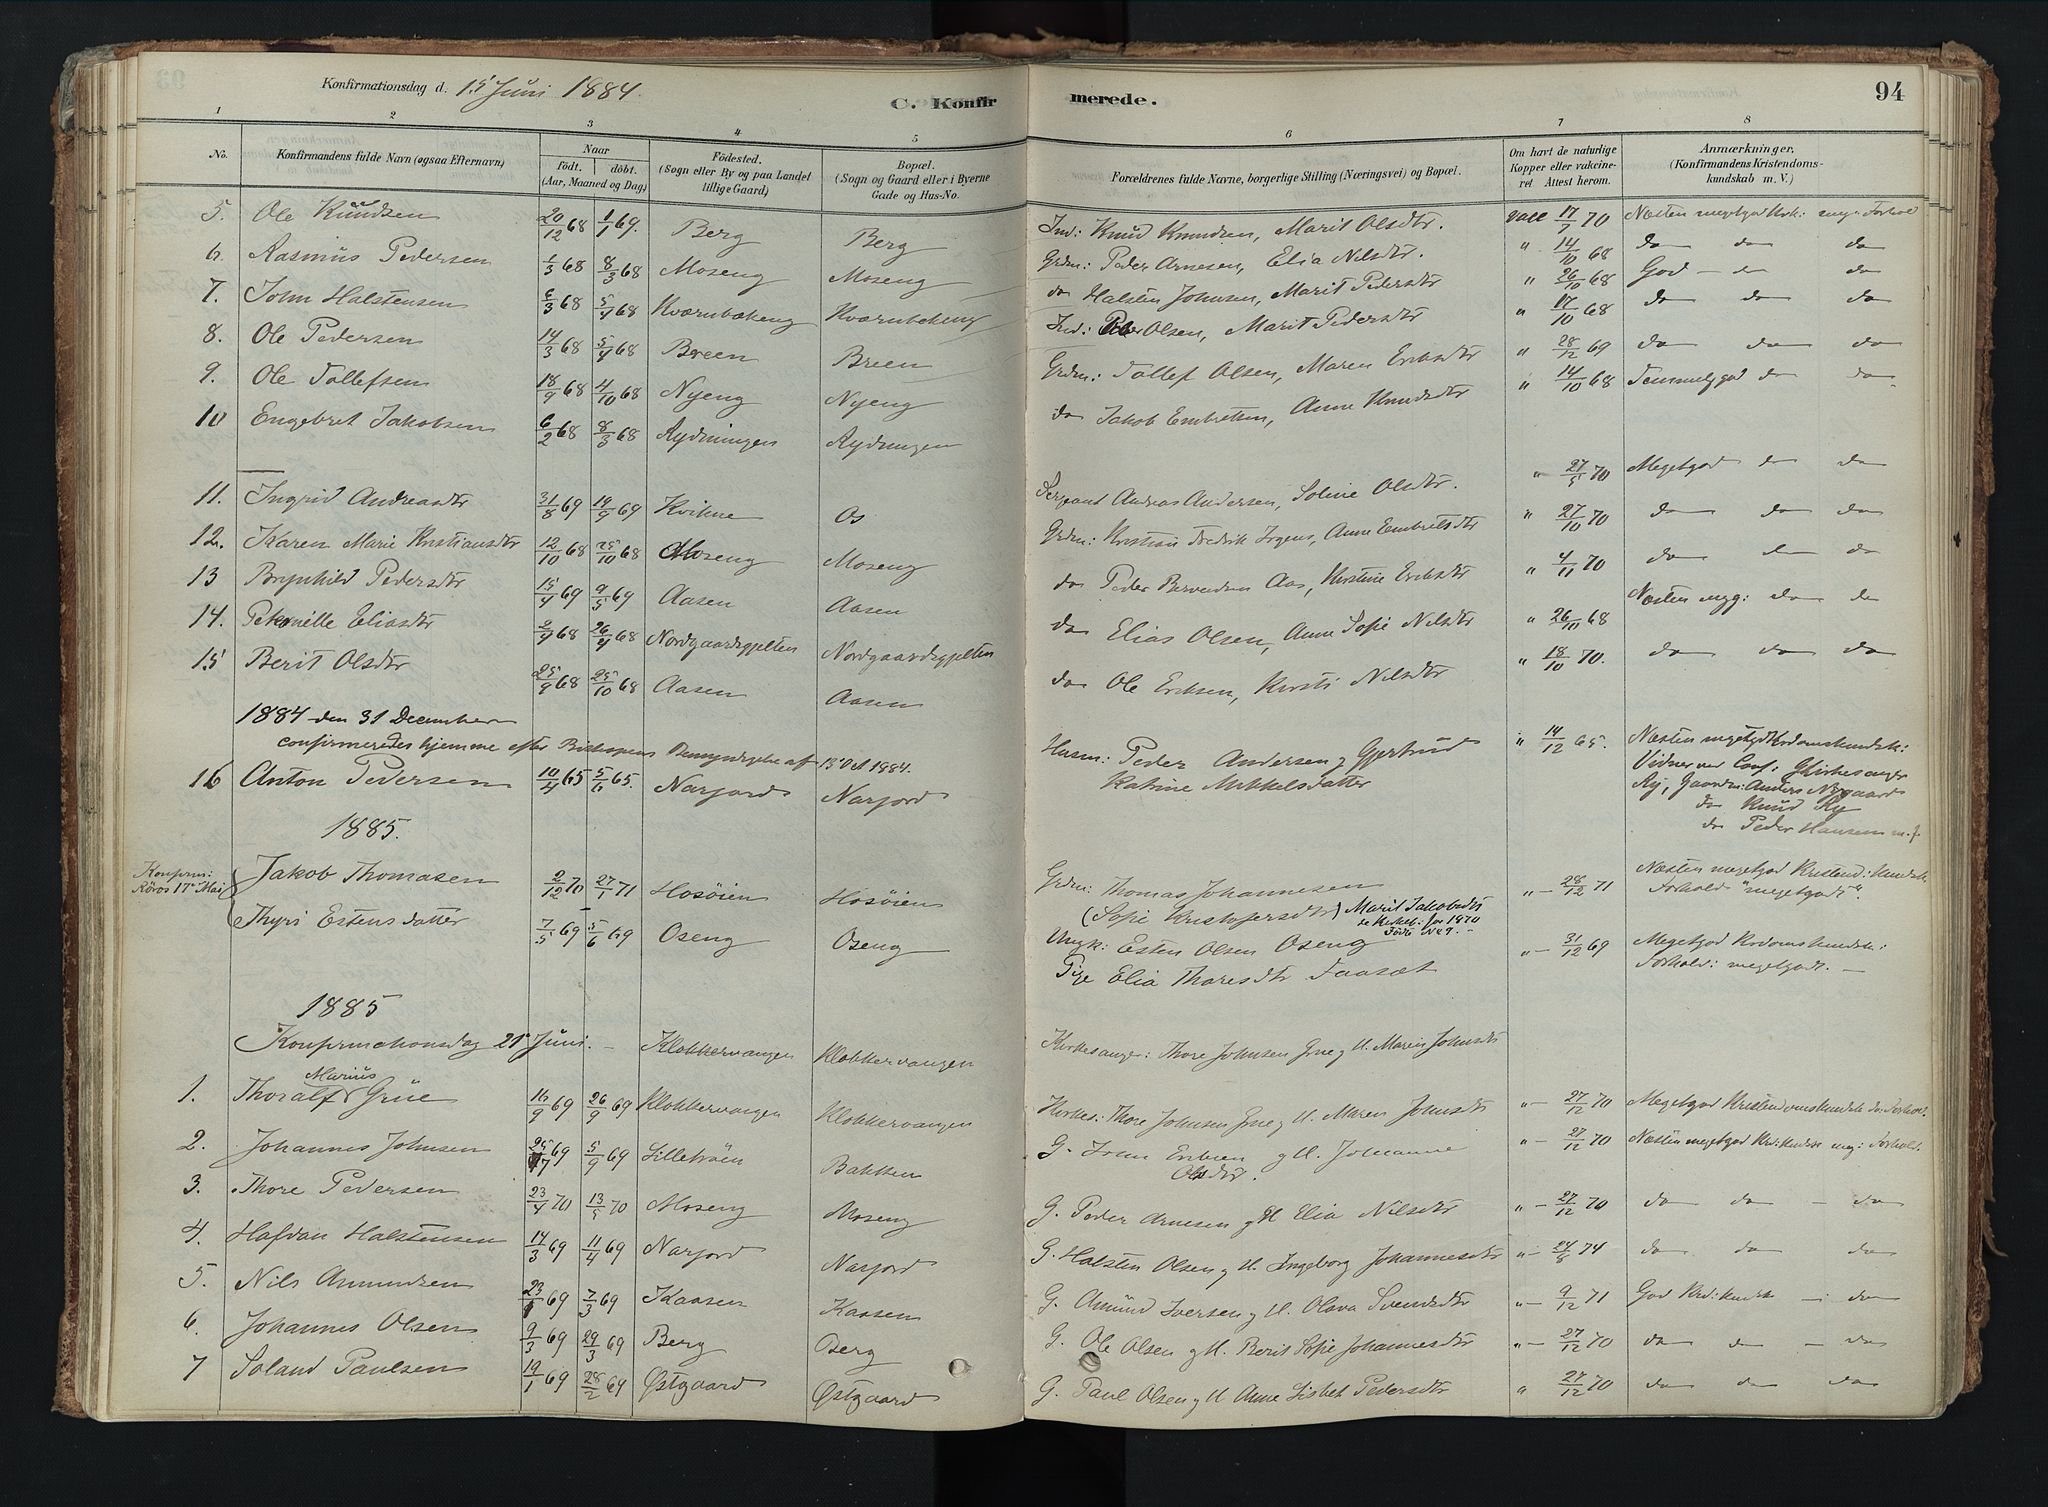 Konfirmationsdag d. 15 Juni 1884.
C. Konfirmerede.
94
1 2 3 4 5 6 7 8
No. Konfirmandens fulde Navn (ogsaa Efternavn) Naar født. døbt. (Aar, Maaned og Dag) Fødested. (Sogn eller By og paa Landet tillige Gaard) Bopæl. (Sogn og Gaard eller i Byerne Gade og Hus-No. Forældrenes fulde Navne, borgerlige Stilling (Næringsvei) og Bopæl. Om havt de naturlige Kopper eller vakcineret Attest herom. Anmærkninger, (Konfirmandens Kristendomskundskab m. V.)
5. Ole Knudsen 20/12 68 1/1 69. Berg Berg Ind: Knud Knudsen, Marit Olsdtr. vacc 17/7 70 Næsten megetgod Krk: mg: Forhold
6. Rasmus Pedersen 1/3 68 8/3 68 Moseng Moseng Grdm: Peder Arnesen, Elia Nilsdtr. " 14/10 68 do do do
7. John Halstensen 6/3 68 5/4 68 Kværnbækeng Kværnbekeng do Halsten Johnsen, Marit Pedersdtr " 26/10 68 God - do do
8. Ole Pedersen 14/3 68 5/4 68 Breen Breen Ind: Peder Olsen, Marit Pedersdtr " 17/10 68 do do do
9. Ole Tollefsen 18/9 68 4/10 68 Nyeng Nyeng Grdm: Tollef Olsen, Maren Eriksdtr " 28/12 69 do do do
10 Engebret Jakobsen 6/2 68 8/3 68 Rydningen Rydningen do Jakob Embretsen, Anne Knudsdtr " 14/10 68 Temmelg god do do
11. Ingrid Andreasdtr 31/8 69 19/9 69 Kvikne Os Sergeant Andreas Andersen, Soline Olsdtr. " 27/5 70 Megetgod do do
12. Karen Marie Kristiansdtr 12/10 68 25/10 68 Moseng Moseng Grdm: Kristian Fredrik Irgens, Anne Embretsdtr " 27/10 70 do do do
13 Brynhild Pedersdtr 15/4 69 9/5 69 Aasen Aasen do Peder Aas, Kirstine Eriksdtr " 4/11 70 do do do
14. Petronelle Eliasdtr 2/4 68 26/4 68 Nordgaardsgjelten Nordgaardsgjelten do Elias Olsen, Anne Sofie Nilsdtr " 26/10 68 Næsten mgg: do do
15 Berit Olsdtr 25/9 68 25/10 68 Aasen Aasen do Ole Eriksen, Kirsti Nilsdtr " 18/10 70. do do do
1884 den 31 December
confirmeredes hjemme efter Biskopens Bemyndigelse af 13 Oct 1884.
16 Anton Pedersen 10/4 65 5/6 65. Narjord Narjord Husm: Peder Andersen og Gjertrud " 14/12 65. Næsten megetgod Krdomskundsk:
Katrine Mikkelsdatter Vidner ved Conf: Kirkesanger
Ry, Gaardm: Anders Nygaard
do Knud Ry
do Peder Hansen m. f.
1885.
Konfirm: Røros 17 Mai
Jakob Thomasen 2/12 70 27/1 71 Hosøien Hosøien Grdm: Thomas Johannesen " - 28/12 71 Næsten megetgod Kristend: kundsk.
(Sofie Kristofersdtr) Marit Jakobsdtr Forhold "megetgodt".
se Kirkeb: for 1870
Fødte No 9.
Thyri Estensdatter 7/5 69 5/6 69 Oseng Oseng Ungk: Esten Olsen Oseng " - 31/12 69 Megetgod Krdomskundsk:
Pige Elia Thoresdtr Faasæt Forhold: megetgodt. -
1885
Konfirmationsdag 21 Juni. - Klokkervangen Klokkervangen Kirkesanger: Thore Johnsen Grue og H. Maren Johnsdtr
1. Thoralf Marius Grue 16/9 69 26/9 69 Klokkervangen Klokkervangen Kirkes: Thore Johnsen Grue og H. Maren Johnsdtr " - 27/12 70 Megetgod Kristendomskundsk do: Forhold.
2. Johannes Johnsen 25/7 69 5/9 69 Lilletrøen Bakken G. John Eriksen og H. Johanne " - 27/12 70 Næsten megetgod Krd: kundsk mg: Forhold.
Olsdtr.
3. Thore Pedersen 23/4 70 13/5 70 Moseng Moseng G. Peder Arnesen og H Elia Nilsdtr " - 27/12 70 do do - do
4. Hafdan Halstensen 14/3 69 11/4 69 Narjord Narjord G. Halsten Olsen og H. Ingeborg Johannesdtr " - 24/8 74 do do do
5. Nils Amundsen 23/1 69 7/3 69 Kaasen Kaasen G. Amund Iversen og H. Olava Svendsdtr " - 9/12 71 God Krd: kundsk - do
6. Johannes Olsen 9/3 69 29/3 69 Berg Berg G. Ole Olsen og H. Berit Sofie Johannesdtr " - 27/12 70 do do - do
7 Soland Paulsen 19/1 69 28/2 69 Østgaard Østgaard G. Paul Olsen og H Anne Lisbet Pedersdtr " 27/12 70 do do do